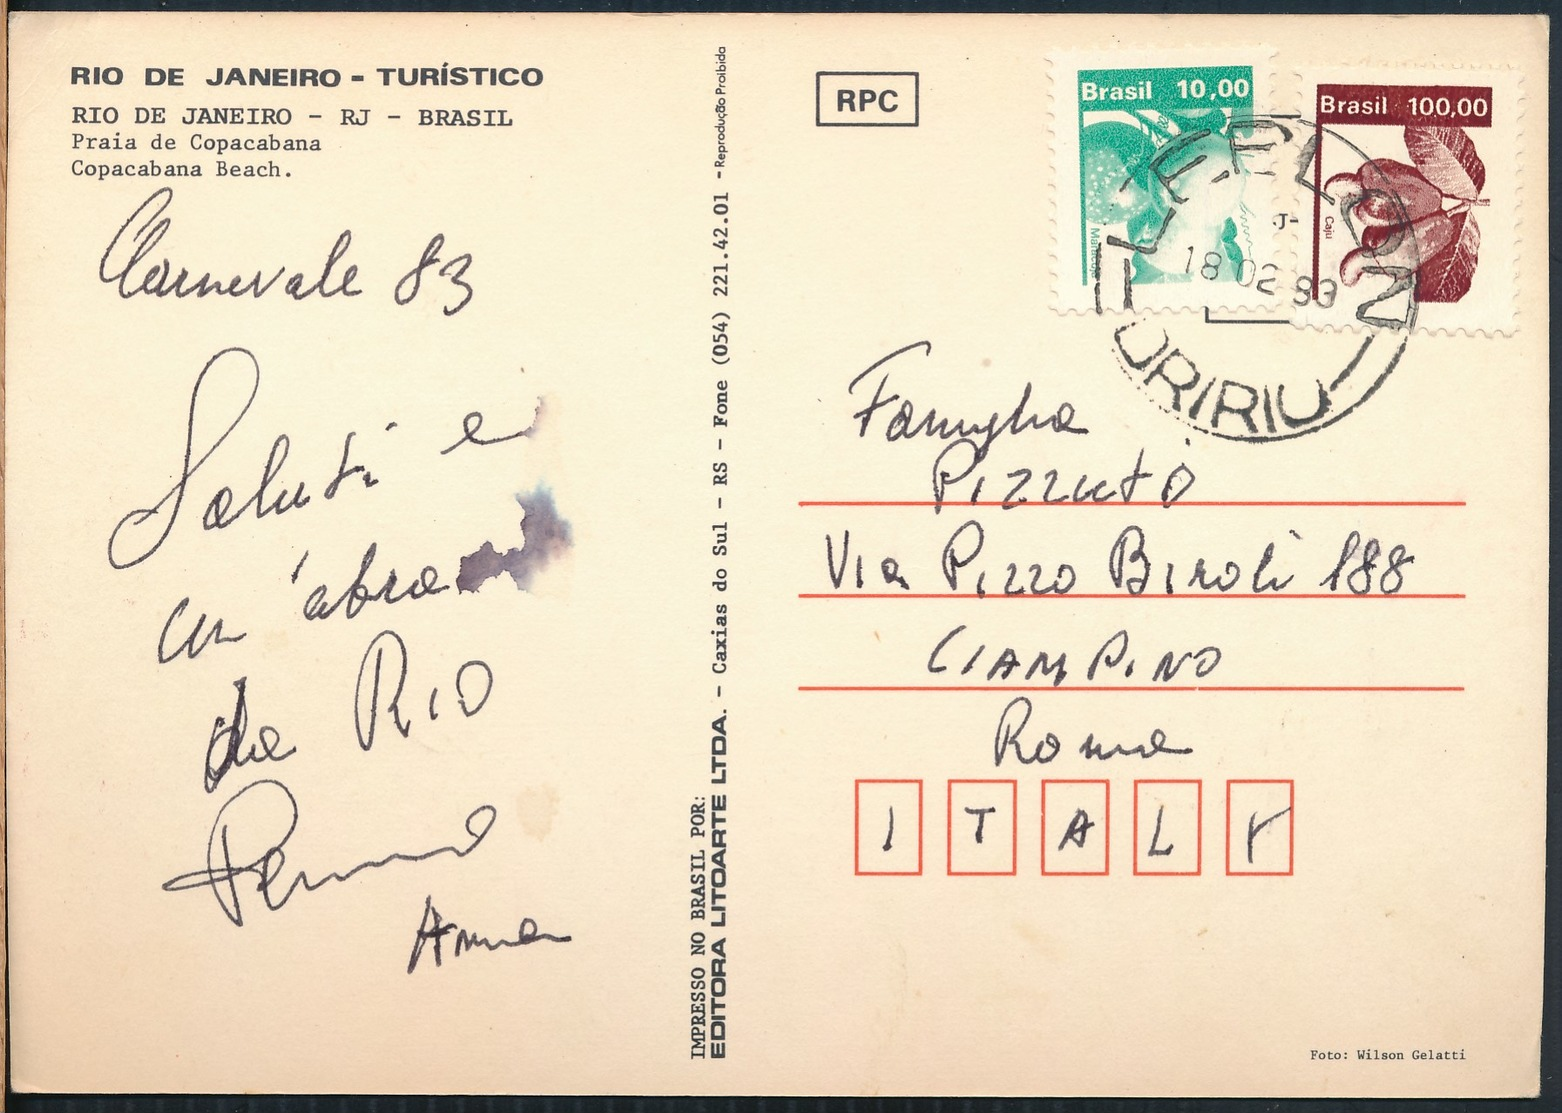 RIO DE JANEIRO - TURÍSTICO
RIO DE JANEIRO - RJ - BRASIL
Praia de Copacabana
Copacabana Beach.
Carnevale 83
Saluti e
un'abbra
da RIO
Anna
IMPRESSO NO BRASIL POR:
EDITORA LITOARTE LTDA. - Caxias do Sul - RS - Fone (054) 221.42.01 - Reprodução Proibida
RPC
Brasil 10,00
Brasil 100,00
Caju
LEBLON
18 02 83
Famiglia
Pizzuto
Via Pizzo Biroli 188
CIAMPINO
Roma
I T A L Y
Foto: Wilson Gelatti